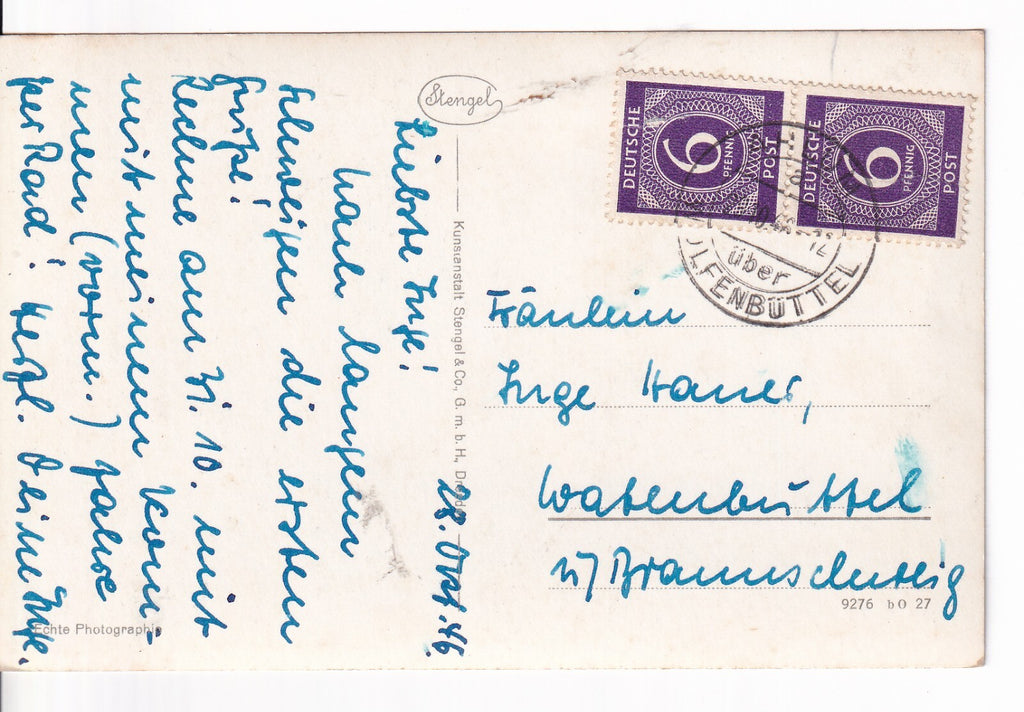 28. Okt. 46.
Liebste Inge!
Nach langem
Schweigen die ersten
Grüße!
Rechne am 31. 10. mit
mit meinem Kom-
men (vorm.) fahre
per Rad! Herzl. Deine Inge.
Stengel
Kunstanstalt Stengel & Co., G. m. b. H., Dresden
Echte Photographie
DEUTSCHE
6
PFENNIG
POST
DEUTSCHE
6
PFENNIG
POST
über
WOLFENBÜTTEL
Fräulein
Inge
Watenbüttel
ü/ Braunschweig
9276 b O 27